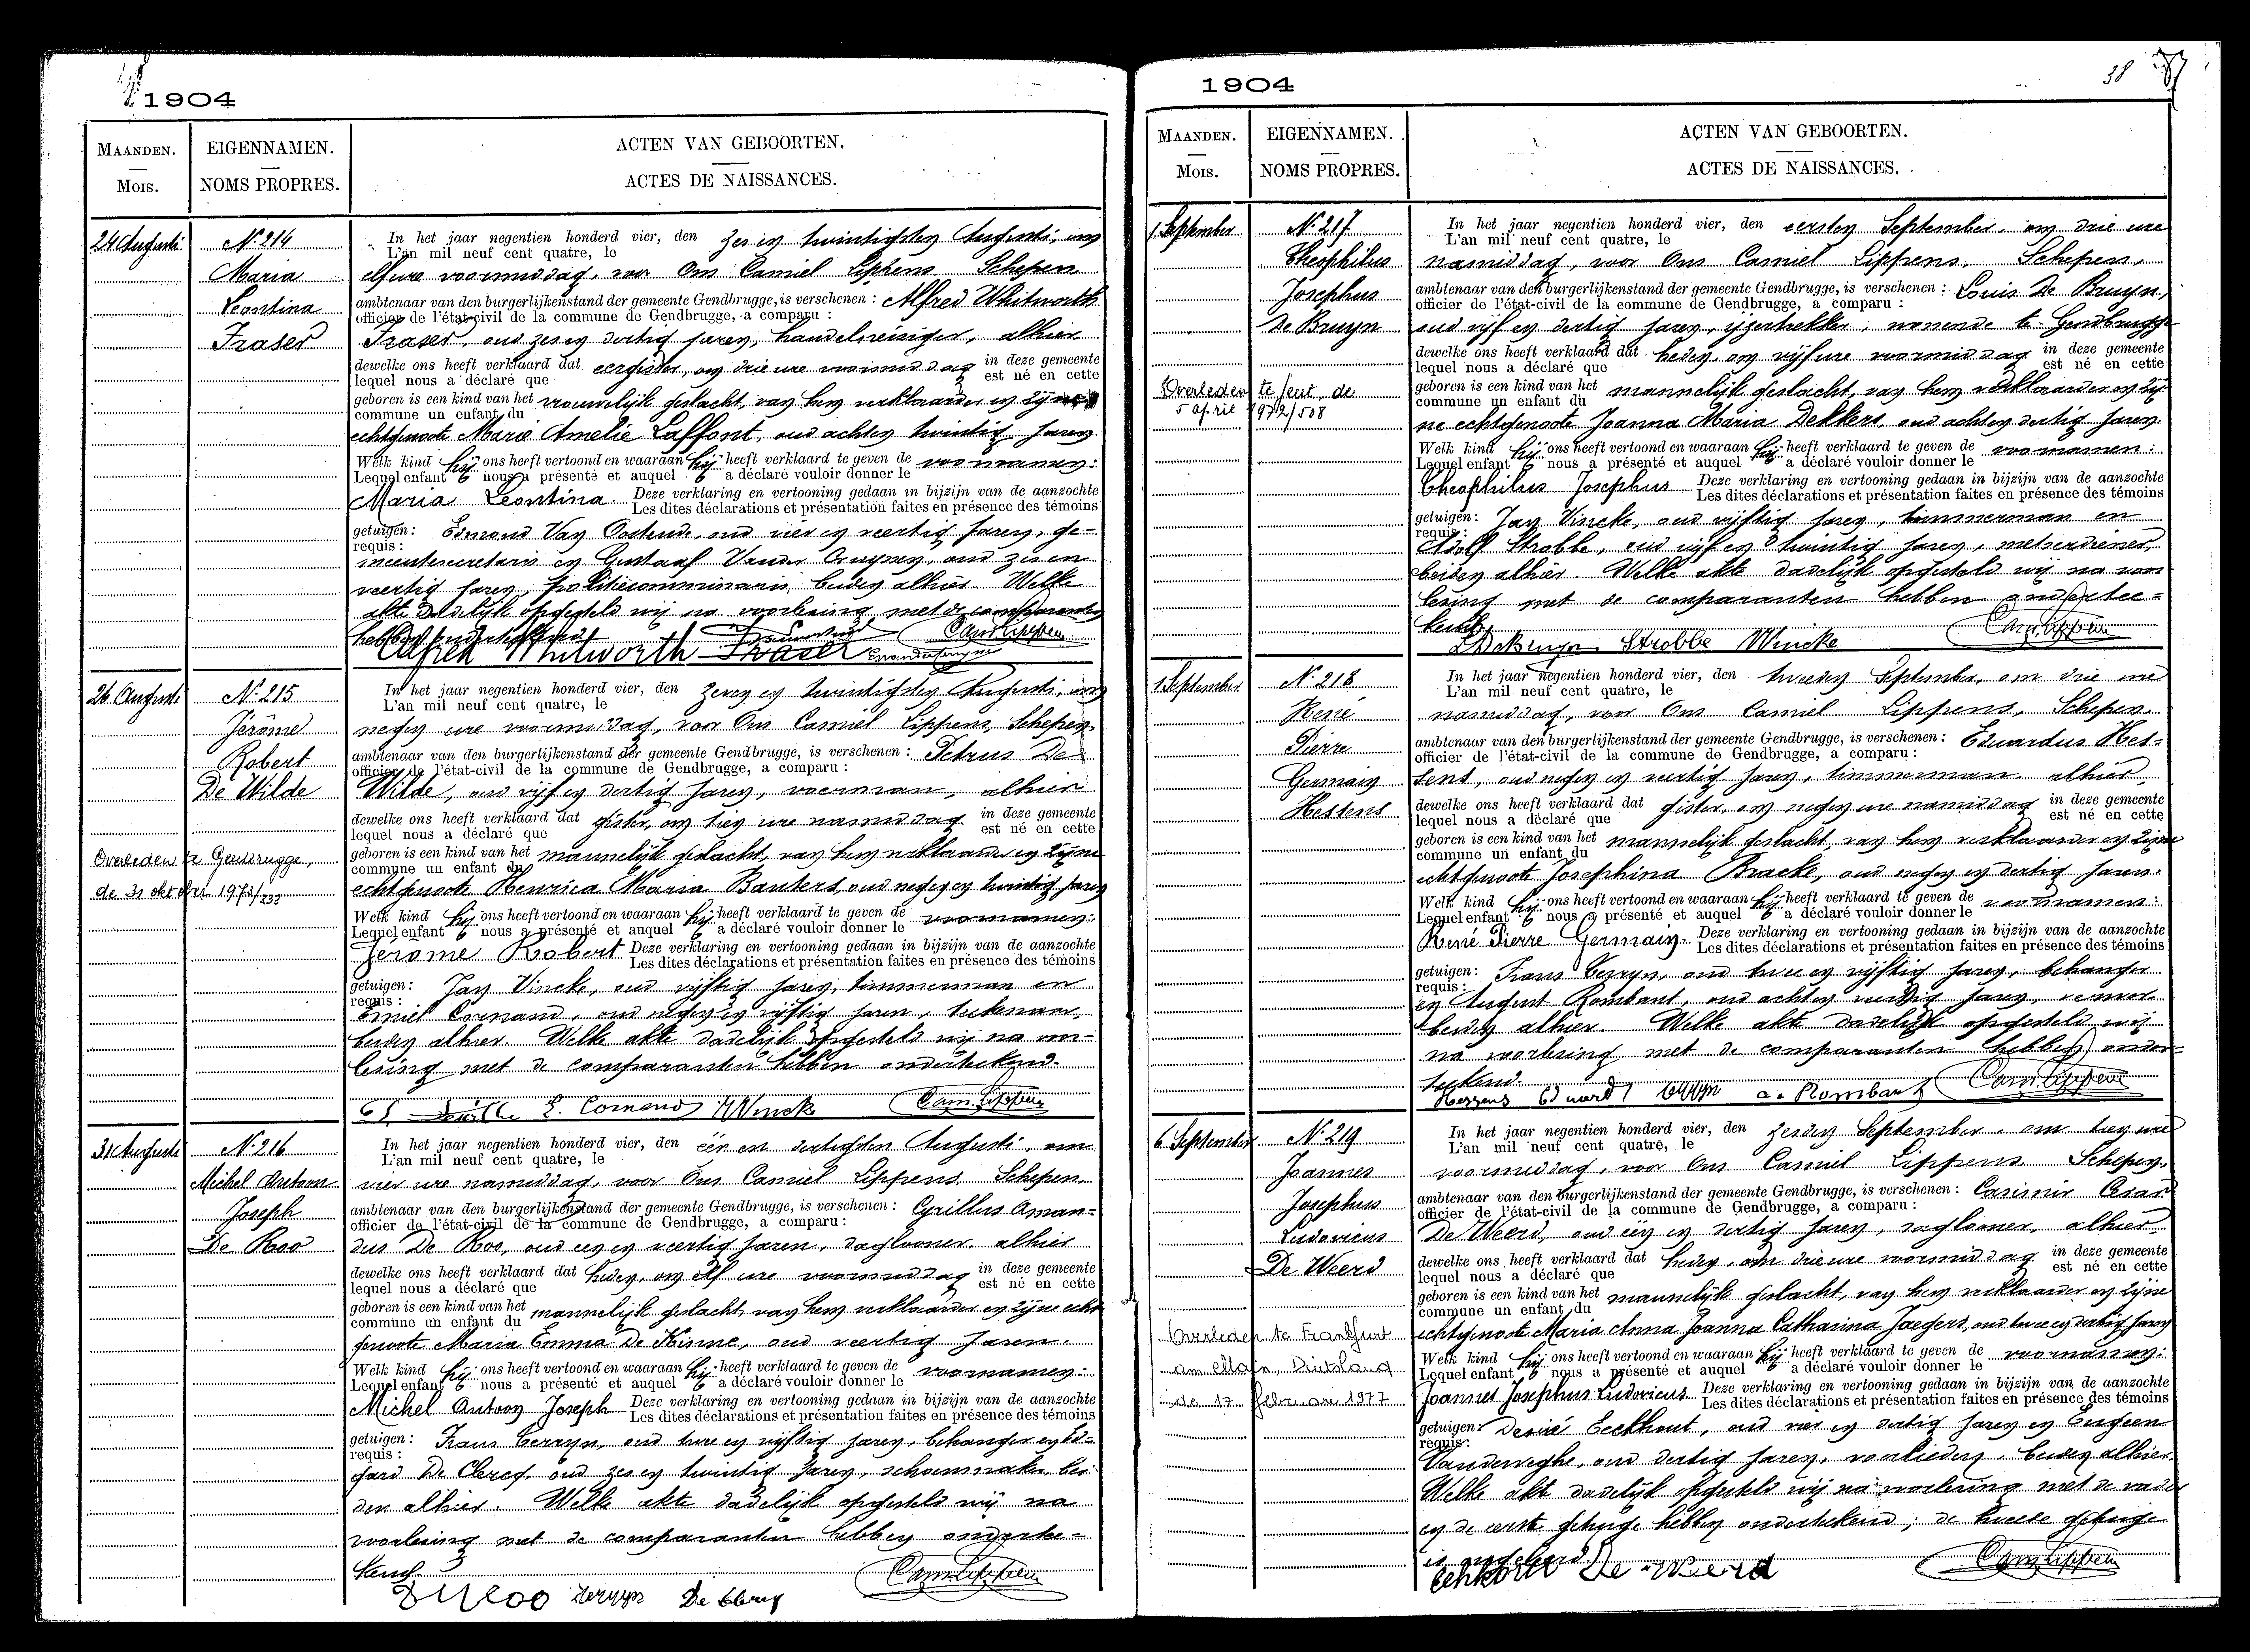 1904
MAANDEN.
Mois.
EIGENNAMEN.
NOMS PROPRES.
ACTEN VAN GEBOORTEN.
ACTES DE NAISSANCES.
24 Augusti
N. 214
Maria
Leontina
Fraser
In het jaar negentien honderd vier, den zes en twintigsten Augusti, om
L'an mil neuf cent quatre, le
elf ure voormiddag, voor Ons Camiel Lippens Schepen
ambtenaar van den burgerlijkenstand der gemeente Gendbrugge, is verschenen : Alfred Whitworth
officier de l'état-civil de la commune de Gendbrugge, a comparu :
Fraser, oud zes en dertig jaren, handelsreiziger, alhier
dewelke ons heeft verklaard dat eergister, om drie ure voormiddag in deze gemeente
lequel nous a déclaré que est né en cette
geboren is een kind van het vrouwelijk geslacht, van hem verklaarder en zijne
commune un enfant du
echtgenoote Marie Amelie Laffont, oud acht en twintig jaren
Welk kind hij ons heeft vertoond en waaraan hij heeft verklaard te geven de voornamen:
Lequel enfant nous a présenté et auquel a déclaré vouloir donner le
Maria Leontina. Deze verklaring en vertooning gedaan in bijzijn van de aanzochte
Les dites déclarations et présentation faites en présence des témoins
getuigen: Edmond Van Oostende, oud vier en veertig jaren, ge-
requis :
meentesecretaris en Gustaaf Vander Cruyssen, oud zes en
veertig jaren, politiecommissaris, beiden alhier Welke
akte dadelijk opgesteld wij na voorlezing met de comparanten
hebben onderteekend.
Alfred Whitworth Fraser Cam. Lippens
26 Augusti
N. 215
Jérôme
Robert
De Wilde
Overleden te Gentbrugge,
de 31 oktober 1973/233
In het jaar negentien honderd vier, den zeven en twintigsten Augusti, om
L'an mil neuf cent quatre, le
negen ure voormiddag, voor Ons Camiel Lippens, Schepen,
ambtenaar van den burgerlijkenstand der gemeente Gendbrugge, is verschenen : Petrus De
officier de l'état-civil de la commune de Gendbrugge, a comparu :
Wilde, oud vijf en dertig jaren, voerman, alhier
dewelke ons heeft verklaard dat gister, om tien ure namiddag in deze gemeente
lequel nous a déclaré que est né en cette
geboren is een kind van het mannelijk geslacht, van hem verklaarder en zijne
commune un enfant du
echtgenoote Henrica Maria Bauters, oud negen en twintig jaren
Welk kind hij ons heeft vertoond en waaraan hij heeft verklaard te geven de voornamen:
Lequel enfant nous a présenté et auquel a déclaré vouloir donner le
Jérôme Robert Deze verklaring en vertooning gedaan in bijzijn van de aanzochte
Les dites déclarations et présentation faites en présence des témoins
getuigen: Jan Vincke, oud vijftig jaren, timmerman en
requis :
Emiel Cornand, oud negen en vijftig jaren,
beiden alhier. Welke akte dadelijk opgesteld wij na voor-
lezing met de comparanten hebben onderteekend.
E. Cornand Cam. Lippens
31 Augusti
N. 216
Michel Antoon
Joseph
De Roo
In het jaar negentien honderd vier, den één en dertigsten Augusti, om
L'an mil neuf cent quatre, le
vier ure namiddag, voor Ons Camiel Lippens, Schepen,
ambtenaar van den burgerlijkenstand der gemeente Gendbrugge, is verschenen : Cyrillus Aman-
officier de l'état-civil de la commune de Gendbrugge, a comparu :
dus De Roo, oud een en veertig jaren, daglooner, alhier
dewelke ons heeft verklaard dat heden, om elf ure voormiddag in deze gemeente
lequel nous a déclaré que est né en cette
geboren is een kind van het mannelijk geslacht, van hem verklaarder en zijne echt
commune un enfant du
genoote Maria Emma De oud veertig jaren.
Welk kind hij ons heeft vertoond en waaraan hij heeft verklaard te geven de voornamen:
Lequel enfant nous a présenté et auquel a déclaré vouloir donner le
Michel Antoon Joseph Deze verklaring en vertooning gedaan in bijzijn van de aanzochte
Les dites déclarations et présentation faites en présence des témoins
getuigen: Frans oud twee en vijftig jaren, behanger en Ed-
requis :
gard De Clercq, oud zes en twintig jaren, schoenmaker, bei-
den alhier. Welke akte dadelijk opgesteld wij na
voorlezing met de comparanten hebben ondertee-
kend.
Cam. Lippens
1904
38
MAANDEN.
Mois.
EIGENNAMEN.
NOMS PROPRES.
ACTEN VAN GEBOORTEN.
ACTES DE NAISSANCES.
1 September
N. 217
Theophilus
Josephus
De Bruyn
Overleden te Gent, de
5 april 1972/508
In het jaar negentien honderd vier, den eersten September, om drie ure
L'an mil neuf cent quatre, le
namiddag, voor Ons Camiel Lippens, Schepen,
ambtenaar van den burgerlijkenstand der gemeente Gendbrugge, is verschenen : Louis De Bruyn,
officier de l'état-civil de la commune de Gendbrugge, a comparu :
oud vijf en dertig jaren, ijzertrekker, wonende te Gendbrugge
dewelke ons heeft verklaard dat heden, om vijf ure voormiddag in deze gemeente
lequel nous a déclaré que est né en cette
geboren is een kind van het mannelijk geslacht, van hem verklaarder en zij-
commune un enfant du
ne echtgenoote Joanna Maria Dekkers, oud acht en dertig jaren.
Welk kind hij ons heeft vertoond en waaraan hij heeft verklaard te geven de voornamen:
Lequel enfant nous a présenté et auquel a déclaré vouloir donner le
Theophilus Josephus Deze verklaring en vertooning gedaan in bijzijn van de aanzochte
Les dites déclarations et présentation faites en présence des témoins
getuigen: Jan Vincke, oud vijftig jaren, timmerman en
requis :
Adolf Strobbe, oud vijf en twintig jaren, metserdiener,
beiden alhier. Welke akte dadelijk opgesteld wij na voor
lezing met de comparanten hebben ondertee-
kend.
L De Bruyn Strobbe Vincke Cam. Lippens
1 September
N. 218
René
Pierre
Germain
Hessens
In het jaar negentien honderd vier, den tweeden September, om drie ure
L'an mil neuf cent quatre, le
namiddag, voor Ons Camiel Lippens, Schepen,
ambtenaar van den burgerlijkenstand der gemeente Gendbrugge, is verschenen : Eduardus Hes-
officier de l'état-civil de la commune de Gendbrugge, a comparu :
sens, oud negen en veertig jaren, timmerman alhier,
dewelke ons heeft verklaard dat gister, om negen ure namiddag in deze gemeente
lequel nous a déclaré que est né en cette
geboren is een kind van het mannelijk geslacht, van hem verklaarder en zijne
commune un enfant du
echtgenoote Josephina Bracke, oud negen en dertig jaren.
Welk kind hij ons heeft vertoond en waaraan hij heeft verklaard te geven de voornamen:
Lequel enfant nous a présenté et auquel a déclaré vouloir donner le
René Pierre Germain. Deze verklaring en vertooning gedaan in bijzijn van de aanzochte
Les dites déclarations et présentation faites en présence des témoins
getuigen: Frans oud twee en vijftig jaren, behanger
requis :
en August Rombaut, oud acht en jaren,
beiden alhier. Welke akte dadelijk opgesteld wij
na voorlezing met de comparanten hebben onder-
teekend.
Hessens Eduard a. Rombaut Cam. Lippens
6 September
N. 219
Joannes
Josephus
Ludovicus
De Weerd
Overleden te Frankfurt
am Main, Duitsland
de 17 februari 1977
In het jaar negentien honderd vier, den zesden September, om tien ure
L'an mil neuf cent quatre, le
voormiddag, voor Ons Camiel Lippens Schepen,
ambtenaar van den burgerlijkenstand der gemeente Gendbrugge, is verschenen : Casimir Cesar
officier de l'état-civil de la commune de Gendbrugge, a comparu :
De Weerd, oud een en dertig jaren, daglooner, alhier
dewelke ons heeft verklaard dat heden, om drie ure voormiddag in deze gemeente
lequel nous a déclaré que est né en cette
geboren is een kind van het mannelijk geslacht, van hem verklaarder en zijne
commune un enfant du
echtgenoote Maria Anna Joanna Catharina Jaegers, oud twee en dertig jaren
Welk kind hij ons heeft vertoond en waaraan hij heeft verklaard te geven de voornamen:
Lequel enfant nous a présenté et auquel a déclaré vouloir donner le
Joannes Josephus Ludovicus Deze verklaring en vertooning gedaan in bijzijn van de aanzochte
Les dites déclarations et présentation faites en présence des témoins
getuigen: Desiré Eeckhout, oud vier en dertig jaren en Eugeen
requis:
Vanderweghe, oud dertig jaren, voerlieden, beiden alhier
Welke akt dadelijk opgesteld wij na voorlezing met de vader
en de eerste getuige hebben onderteekend; de tweede getuige
is ongeleerd.
De Weerd Cam. Lippens